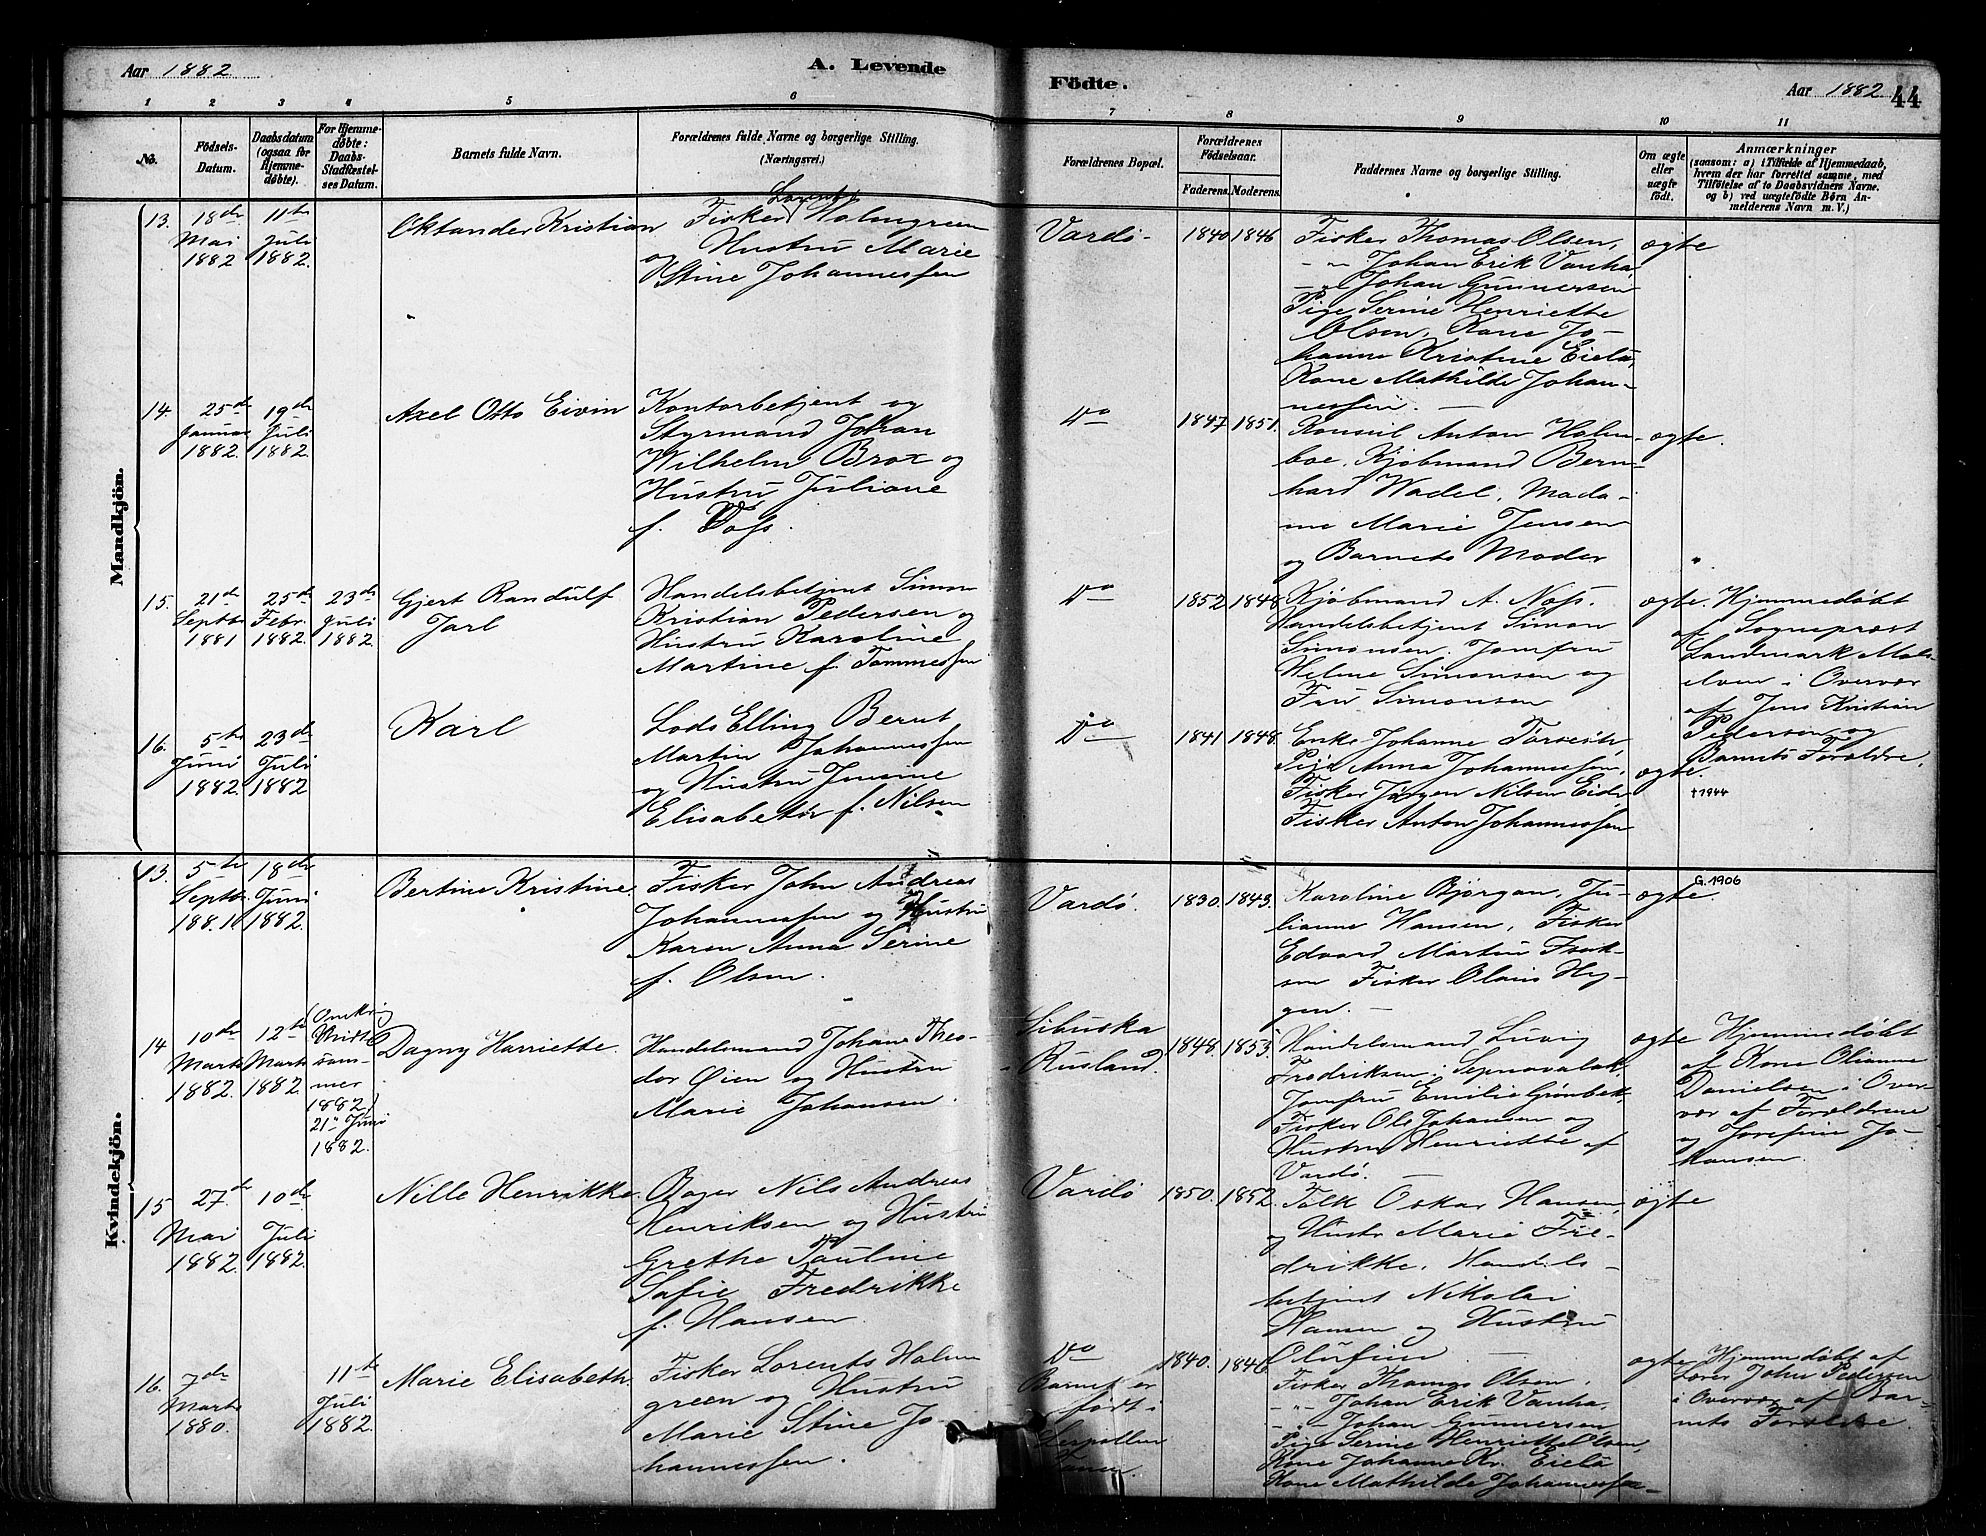 Aar 1882
A. Levende
Födte.
Aar 1882
44
1 2 3 4 5 6 7 8 9 10 11
No.
Födsels-
Datum.
Daabsdatum
(ogsaa for
Hjemme-
döbte).
For Hjemme-
döbte:
Daabs-
Stadfæstel-
ses Datum.
Barnets fulde Navn.
Forældrenes fulde Navne og borgerlige Stilling.
(Næringsvei.)
Forældrenes Bopæl.
Forældrenes
Födselsaar.
Faderens. Moderens.
Faddernes Navne og borgerlige Stilling.
Om ægte
eller
uægte
födt.
Anmærkninger
(saasom: a) i Tilfælde af Hjemmedaab,
hvem der har forrettet samme, med
Tilföielse af to Daabsvidners Navne.
og b) ved uægtefödte Børn An-
melderens Navn m. V.)
Mandkjön.
13.
18de
Mai
1882
11te
Juli
1882.
Oktander Kristian
Lorents
Fisker Holmgreen
og Hustru Marie
Stine Johannessen
Vardø-
1840 1846
Fisker Thomas Olsen,
- " - Johan Erik Vanha,
- " - Johan Gunnersen
Pige Serine Henriette
Olsen, Kone Jo-
hanne Kristine Eielä,
Kone Mathilde Johan-
nessen. -
ægte
14.
25de
Januar
1882.
19de
Juli
1882.
Axel Otto Eivin
Kontorbetjent og
Styrmand Johan
Wilhelm Brox og
Hustru Juliane
f. Voss.
Do
1847 1851.
Konsul Anton Holm-
boe, Kjøbmand Bern-
hard Wadel, Mada-
me Marie Jensen
og Barnets Moder
ægte.
15.
21de
Septbr
1881
25de
Febr.
1882.
23de
Juli
1882.
Gjert Randulf
Jarl
Handelsbetjent Simon
Kristian Pedersen og
Hustru Karoline
Martine f. Tommessen
Do
1852 1848.
Kjøbmand A. Noss.
Handelsbetjent Simon
Simonsen. Jomfru
Helene Simonsen og
Fru Simonsen
ægte.
Hjemmedøbt
af Sogneprest
Landmark Mals-
elven i Overvær
af Jens Kristian
Pedersen og
Barnets Forældre.
16.
5te
Juni
1882.
23de
Juli
1882
Karl
Lods Elling Bernt
Martin Johannessen
og Hustru Jensine
Elisabeth f. Nilsen
Do
1841 1848.
Enke Johanne
Pige Anna Johannessen,
Fisker Jørgen Nilsen Eide
Fisker Anton Johannessen
ægte.
†1944
Kvindekjön.
13.
5te
Septbr
1881.
18de
Juni
1882.
Bertine Kristine.
Fisker John Andreas
Johannessen og Hustru
Karen Anna Serine
f. Olsen.
Vardø.
1830. 1843.
Karoline Bjørgan, Ju-
lianne Hansen, Fisker
Edvard Martin
Fisker Olaus Hy-
gen. -
ægte.
G.1906
14
10de
Marts
1882.
12te
Marts
1882.
(Omkring
Midt-
som-
mer
1882)
21" Juni
1882.
Dagny Harriette.
Handelsmand Johan Theo-
dor Øien og Hustru
Marie Johansen.
Rusland.
1848. 1853.
Handelsmand Luvig
Fredriksen i
Jomfru Emilie Grønbek,
Fisker Ole Johansen og
Hustru Henriette af
Vardø. -
ægte
Hjemmedøbt
af Kone Olianna
Danielsen i Over-
vær af Forældrene
og Josefine Jo-
hansen.
15
27de
Mai
1882.
10de
Juli
1882.
Nille Henrikke.
Bager Nils Andreas
Henriksen og Hustru
Grethe Pauline
Sofie Fredrikke
f. Hansen.
Vardø
1850. 1852.
Tolk Oskar Hansen,
og Hustr Marie Fre-
drikke, Handels-
betjent Nikolai
Hansen og Hustru
Olufine -
ægte
16.
7de
Marts
1880.
11te
Juli
1882.
Marie Elisabeth.
Fisker Lorents Holm
green og Hustru
Marie Stine Jo-
hannessen.
Do
Barnet er
født i
Tanen.
1840. 1846
Fisker Thomas Olsen,
- " - Johan Erik Vanha,
- " - Johan Gunnersen,
Pige Serine Henriette Olsen,
Kone Johanne Kr. Eielä
Kone Mathilde Johannessen
ægte.
Hjemmedøbt af
Lærer John Pedersen
i Overvær af Bar-
nets Forældre.